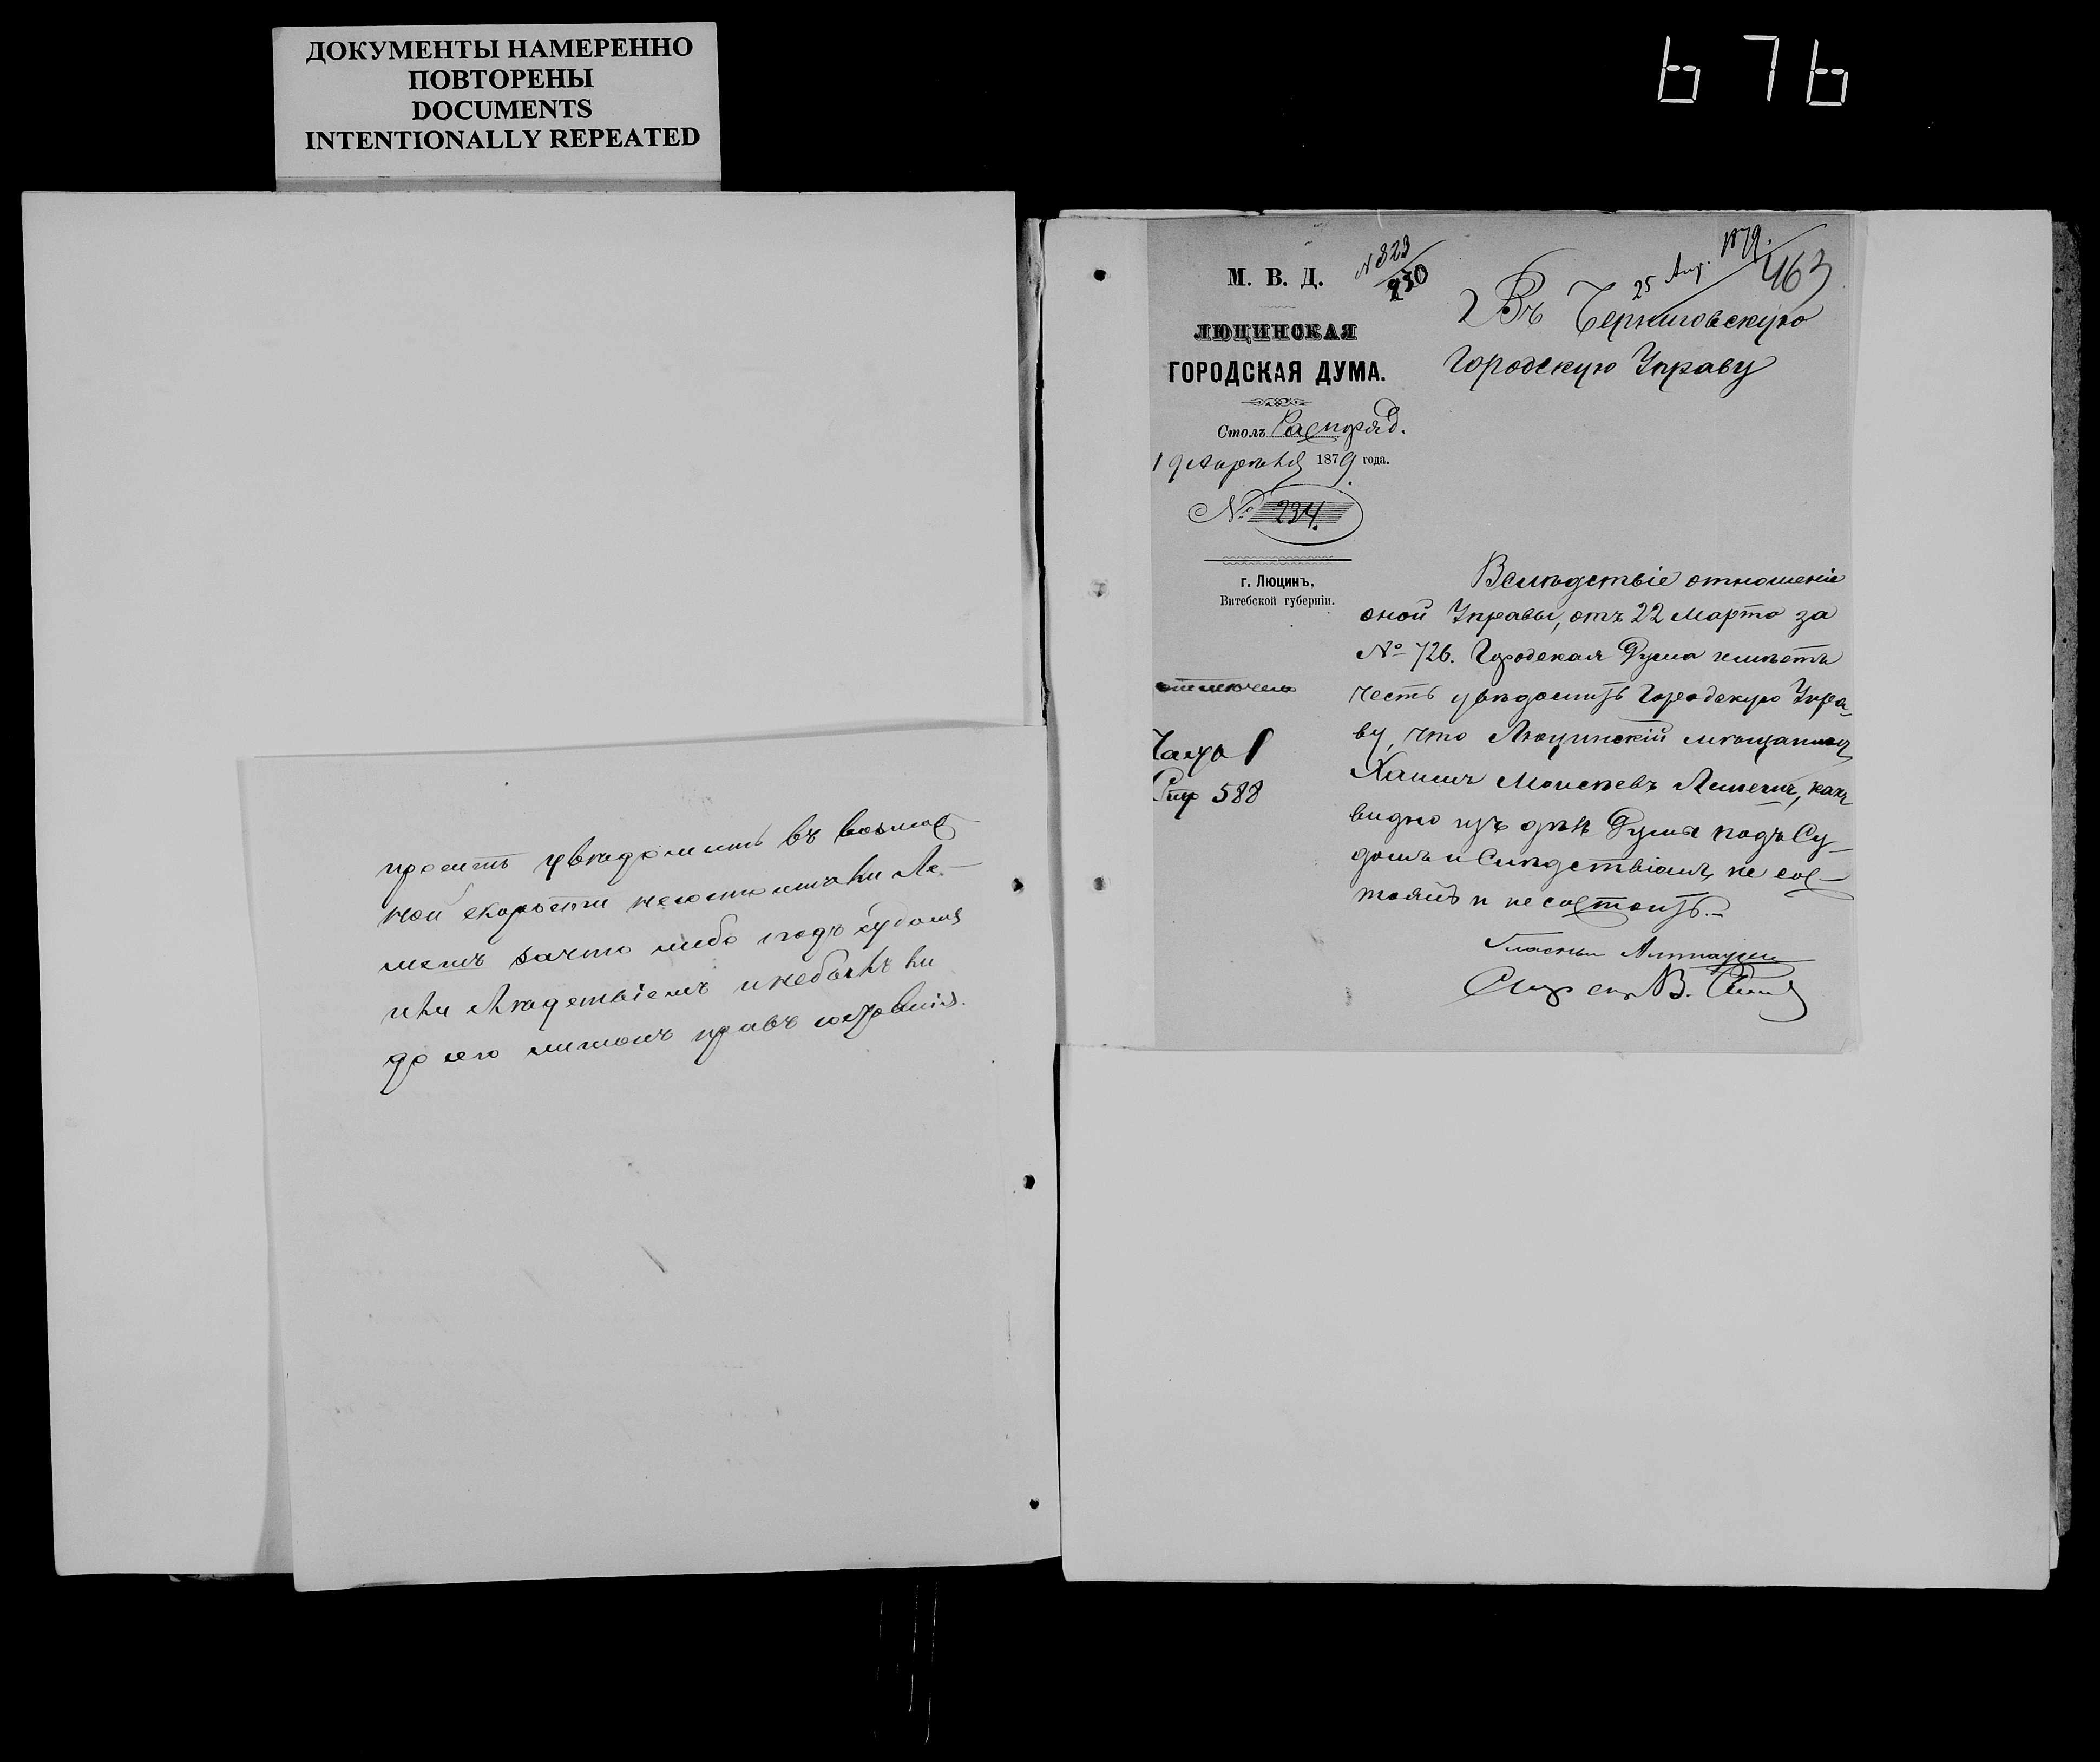 ДОКУМЕНТЫ НАМЕРЕННО
ПОВТОРЕНЫ
DOCUMENTS
INTENTIONALLY REPEATED
676
проситъ увѣдомить въ возмож
ной скорости несостоитъли Ле-
менъ зачто либо подъ судомъ
или слѣдствіемъ и небылъ ли
до сего лишонъ правъ состоянія.
М. В. Д.
№ 323
230
25 Апр. 1879.
463
ЛЮЦИНСКАЯ
ГОРОДСКАЯ ДУМА.
Столъ Распоряд.
19 Апрѣля 1879 года.
№ 234.
г. Люцинъ,
Витебской губерніи.
Въ Черниговскую
Городскую Управу
Вслѣдствіе отношенія
оной Управы, отъ 22 Марта за
№ 726. Городская Дума имѣетъ
честь увѣдомить Городскую Упра-
ву, что Люцинскій мѣщанинъ
Хаимъ Моисеевъ какъ
видно изъ дѣлъ Думы подъ Су-
домъ и Слѣдствіемъ, не сос-
тоялъ и не состоитъ.-
Гласный
В.
Стр 588